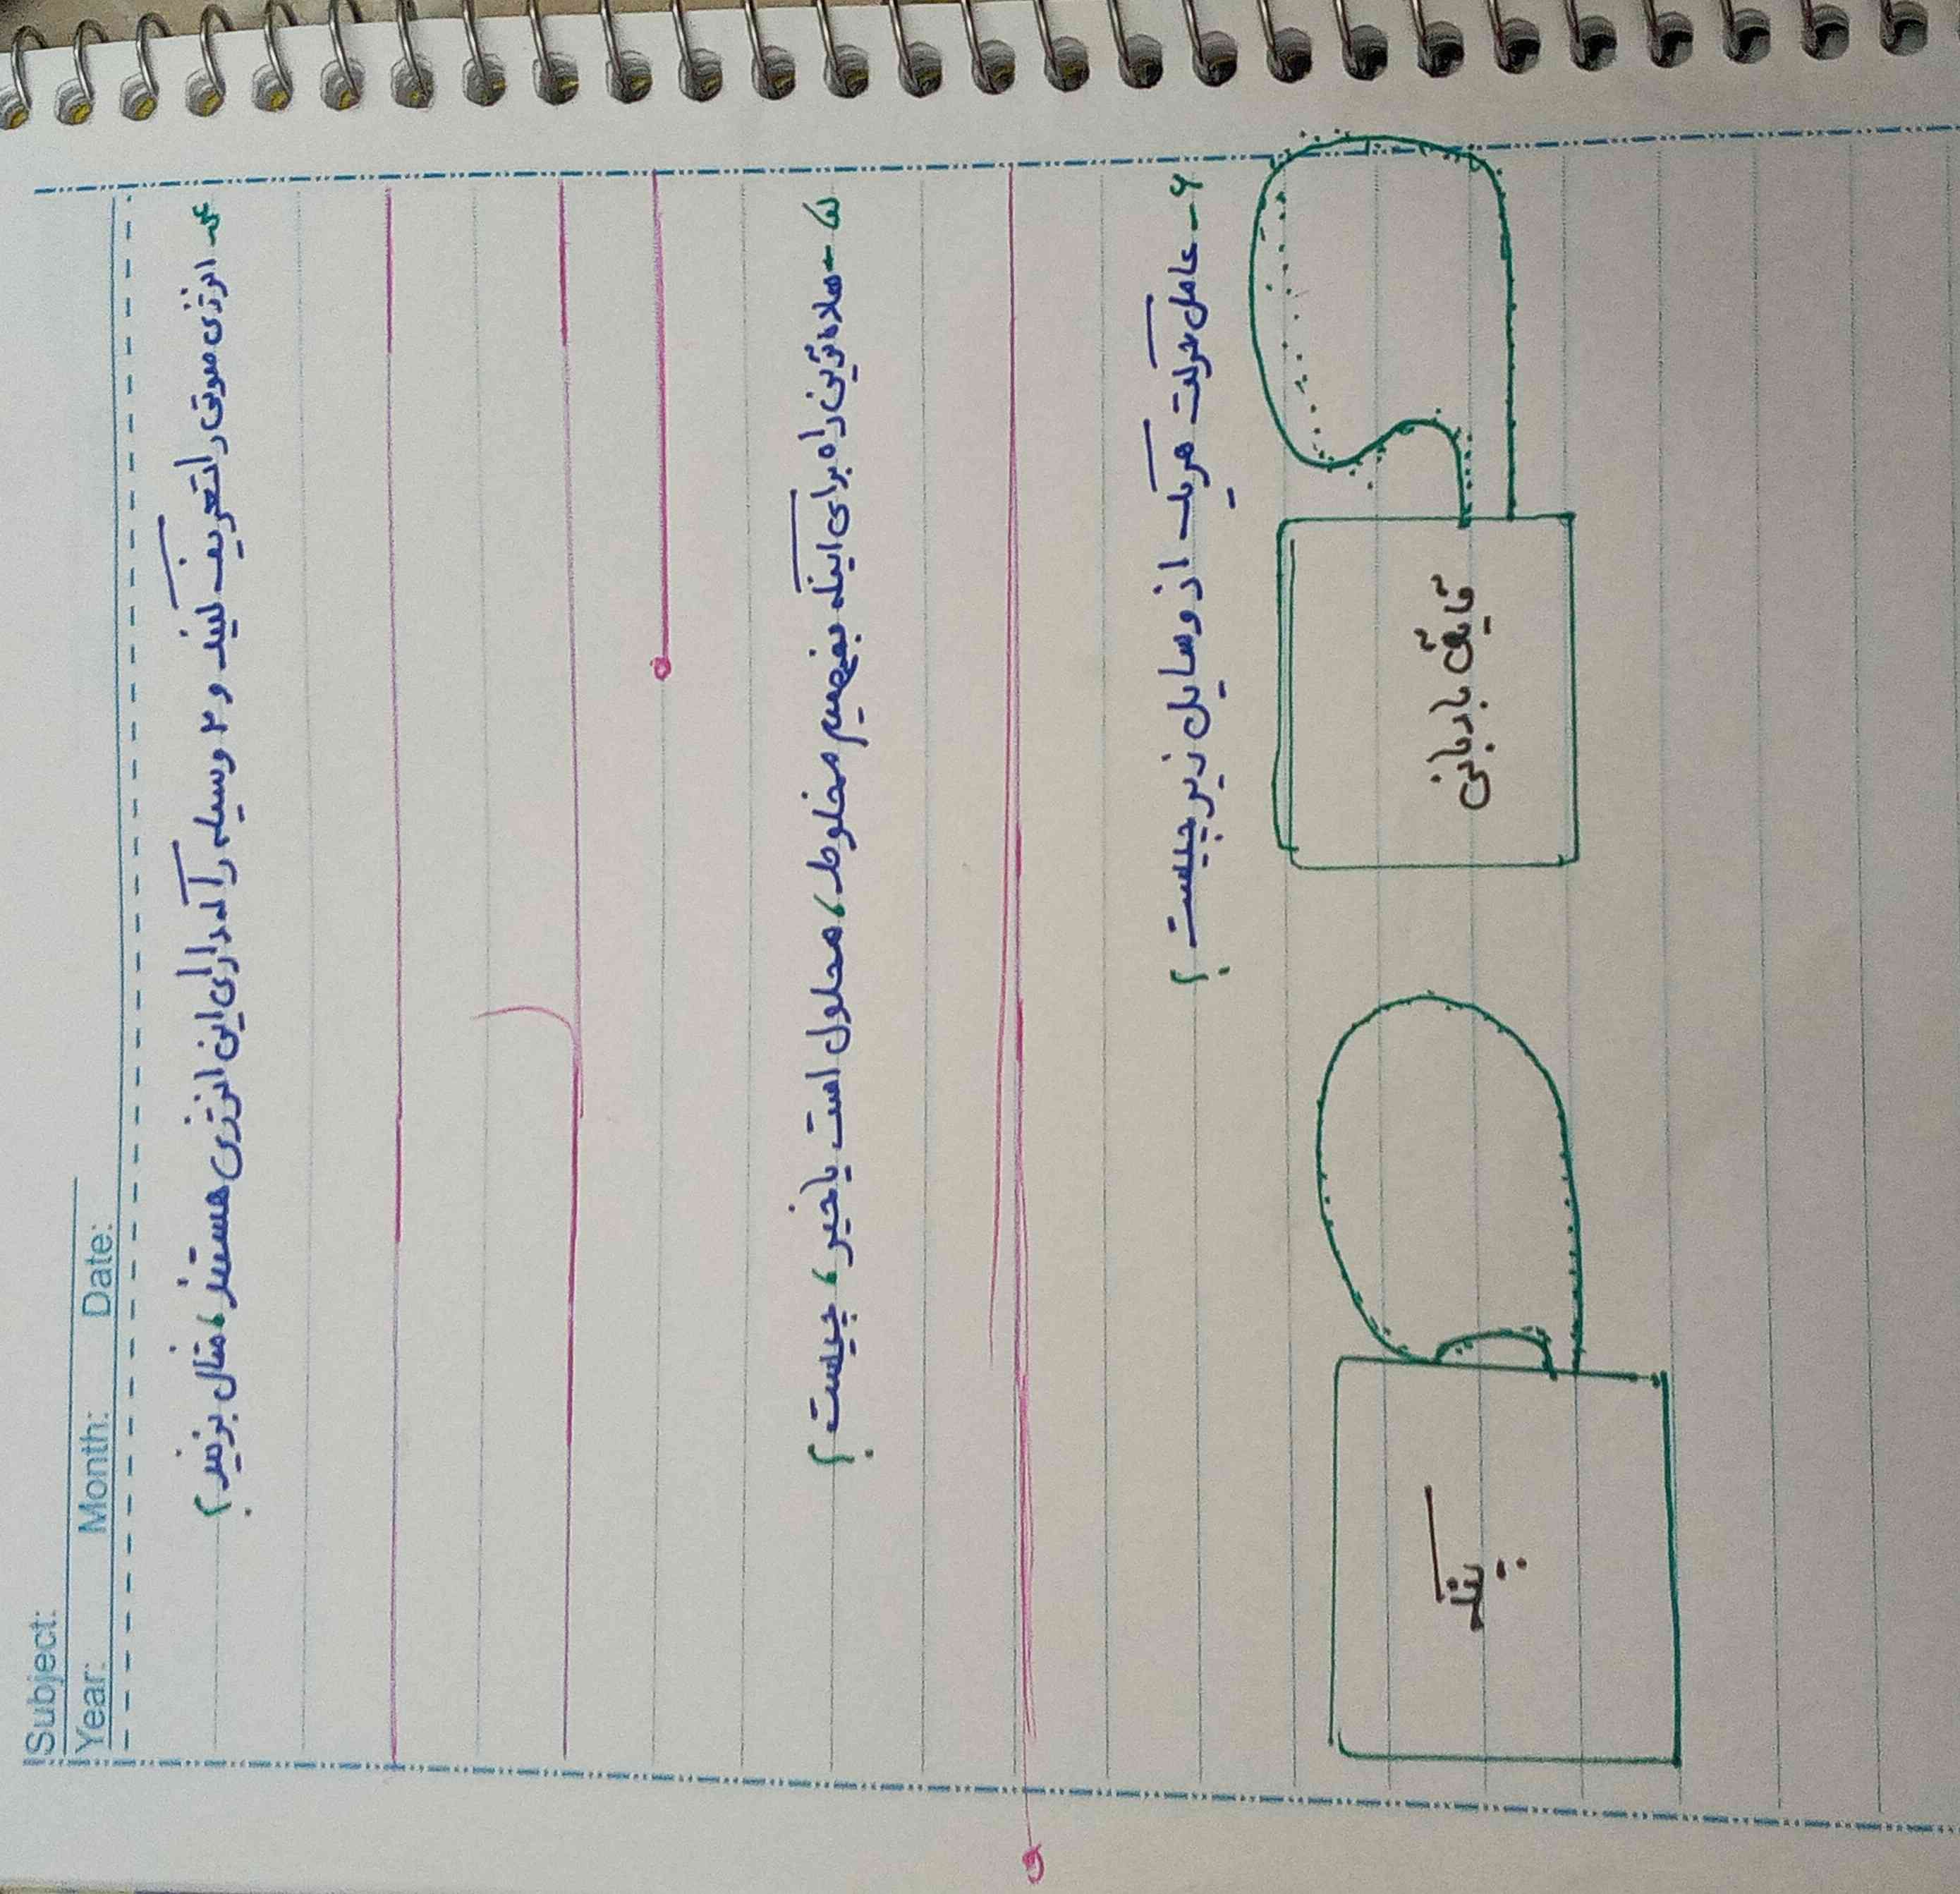 Subject:
Year: Month: Date:
۴- انرژی صوتی را تعریف کنید و ۲ وسیله را که دارای این انرژی هستند، مثال بزنید؟
۵- ساده ترین راه برای اینکه بفهمیم مخلوط، محلول است یا خیر، چیست؟
۶- عامل حرکت هریک از وسایل زیر چیست؟
قایق بادبانی